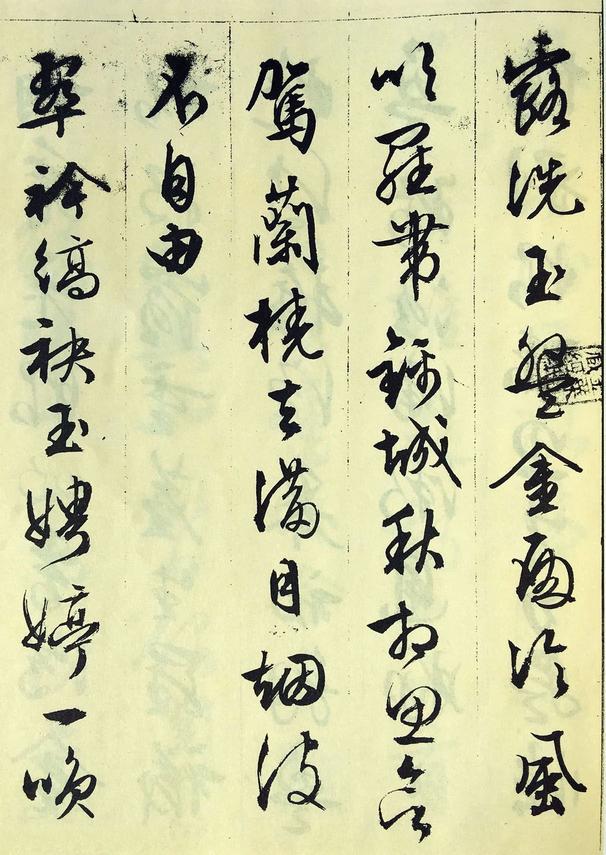 露洗玉盤金殿冷風
吹羅帶錦城秋相思
駕蘭橈去滿目烟波
不自由
翠衿縞袂玉娉婷一喚